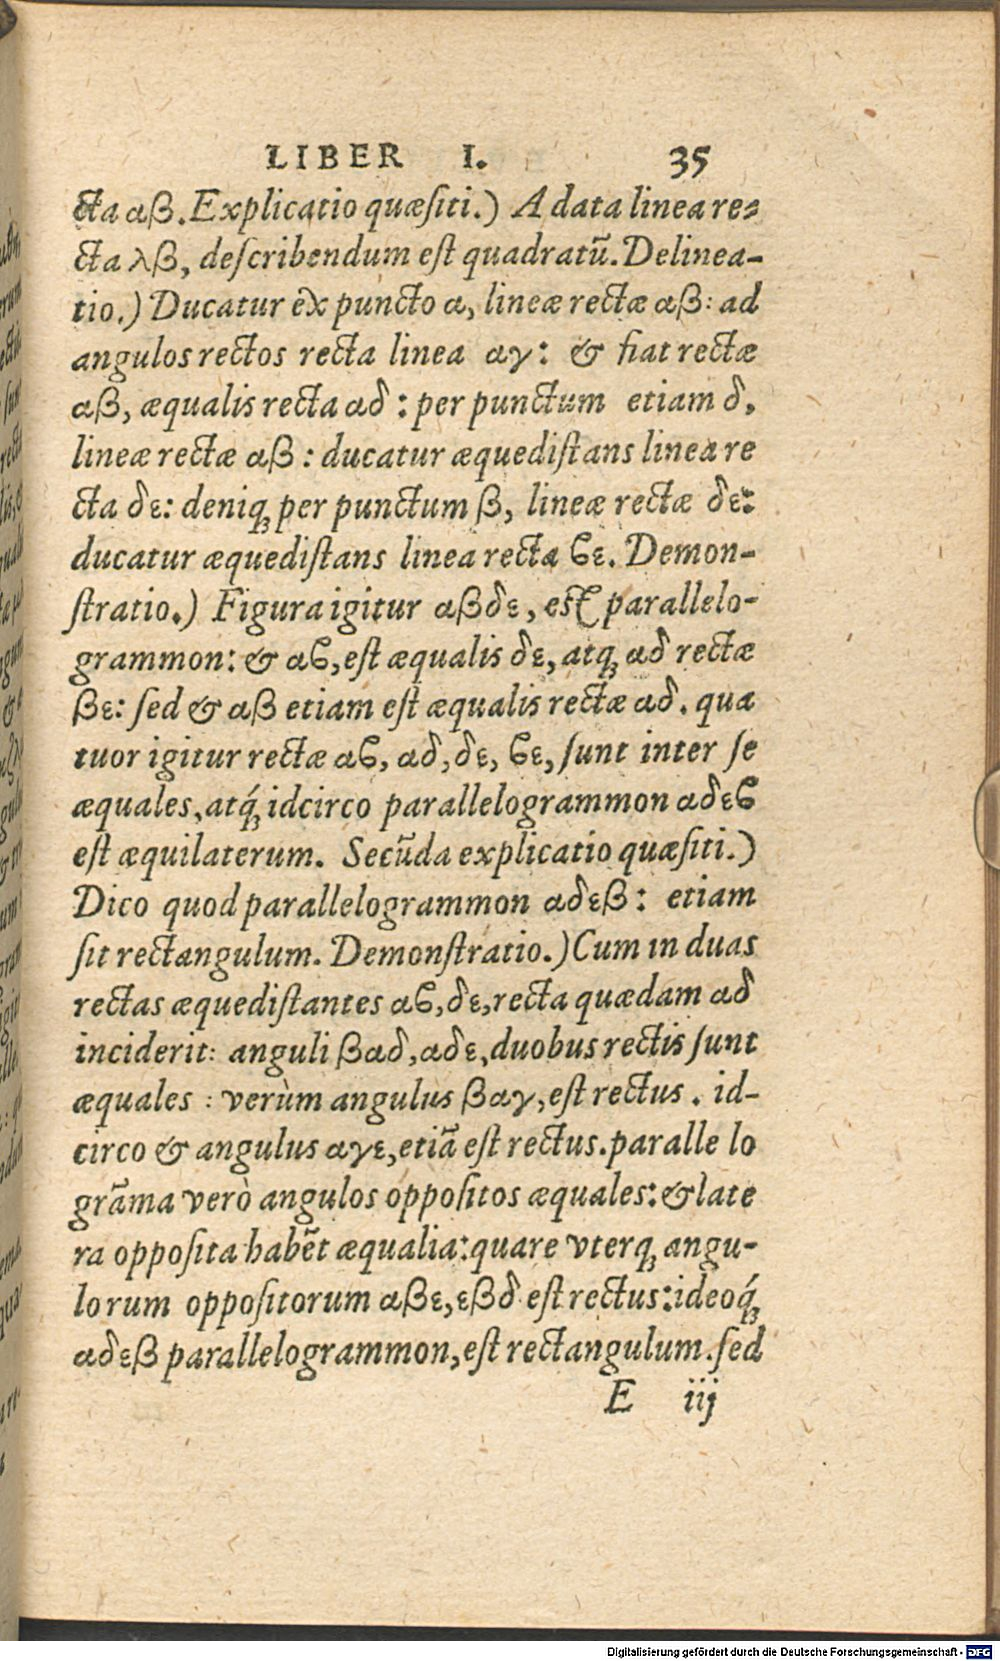 LIBER I. 35
cta αβ. Explicatio quæſiti.) A data linea re-
cta λβ, deſcribendum eſt quadratū. Delinea-
tio.) Ducatur èx puncto α, lineæ rectæ αβ: ad
angulos rectos recta linea αγ: & fiat rectæ
αβ, æqualis recta αδ: per punctum etiam δ,
lineæ rectæ αβ: ducatur æquediſtans linea re
cta δε: deniq; per punctum β, lineæ rectæ δε:
ducatur æquediſtans linea recta ϐε. Demon-
ſtratio.) Figura igitur αβδε, eſt parallelo-
grammon: & αϐ, eſt æqualis δε, atq; αδ rectæ
βε: ſed & αβ etiam eſt æqualis rectæ αδ. qua
tuor igitur rectæ αϐ, αδ, δε, ϐε, ſunt inter ſe
æquales, atq́; idcirco parallelogrammon αδεϐ
eſt æquilaterum. Secūda explicatio quæſiti.)
Dico quod parallelogrammon αδεβ: etiam
ſit rectangulum. Demonſtratio.) Cum in duas
rectas æquediſtantes αϐ, δε, recta quædam αδ
inciderit: anguli βαδ, αδε, duobus rectis ſunt
æquales: verùm angulus βαγ, eſt rectus. id-
circo & angulus αγε, etiã eſt rectus. paralle lo
grãma verò angulos oppoſitos æquales: & late
ra oppoſita habẽt æqualia: quare vterq; angu-
lorum oppoſitorum αβε, εβδ eſt rectus: ideoq́;
αδεβ parallelogrammon, eſt rectangulum. ſed
E iij
Digitalisierung gefördert durch die Deutsche Forschungsgemeinschaft - DFG